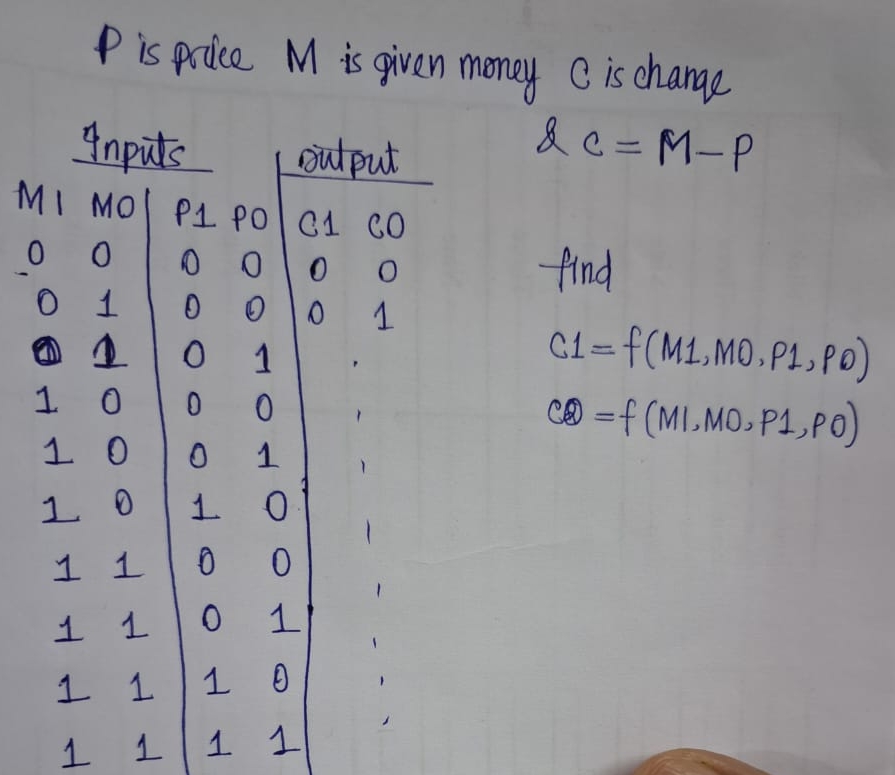 P is price M is given money C is change
& C = M - P
Inputs output
M1 M0 P1 P0 C1 C0
0 0 0 0 0 0
0 1 0 0 0 1
0 1 0 1 .
1 0 0 0 ,
1 0 0 1 ,
1 0 1 0 ,
1 1 0 0 ,
1 1 0 1 ,
1 1 1 0 ,
1 1 1 1 ,
find
C1 = f(M1, M0, P1, P0)
C0 = f(M1, M0, P1, P0)